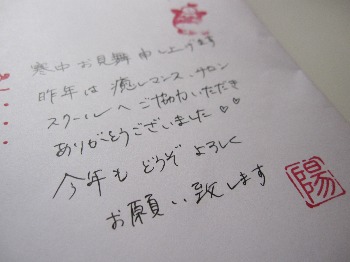 寒中お見舞申し上げます
昨年は 癒しマンス、サロン
スクールへご協力いただき
ありがとうございました♡♡
今年も どうぞ よろしく
お願い致します
陽